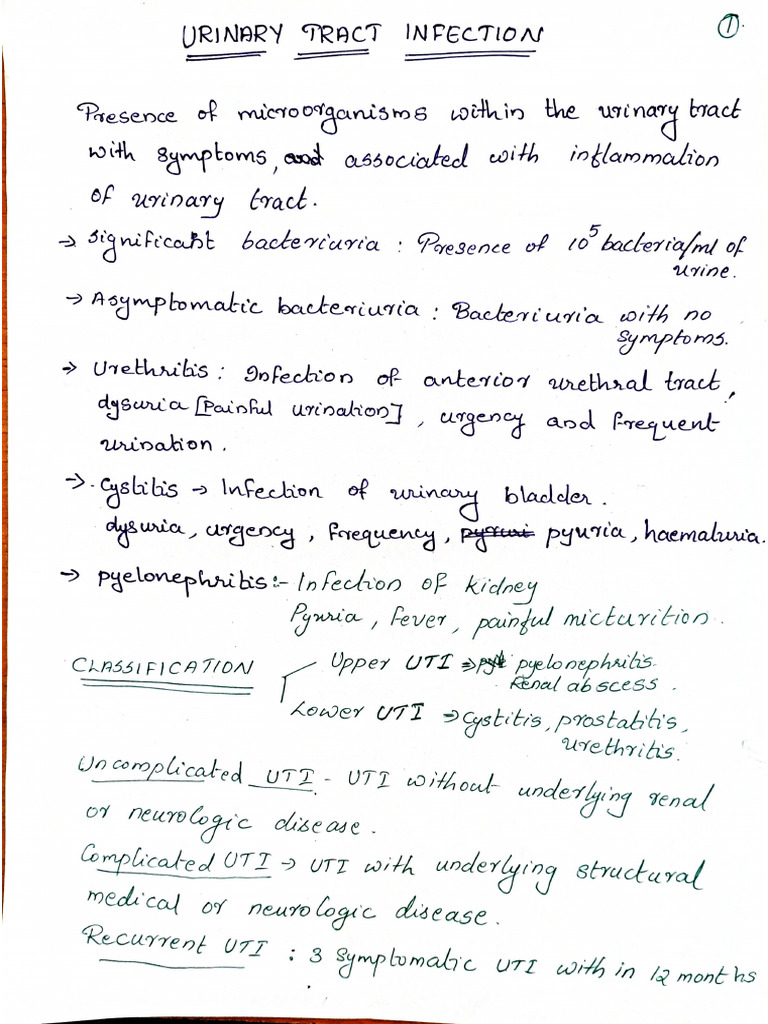 URINARY TRACT INFECTION
1
Presence of microorganisms within the urinary tract
with symptoms, and associated with inflammation
of urinary tract.
→ Significant bacteriuria : Presence of 10⁵ bacteria/ml of
urine.
→ Asymptomatic bacteriuria : Bacteriuria with no
symptoms.
→ Urethritis : Infection of anterior urethral tract,
dysuria [Painful urination], urgency and frequent
urination.
→ Cystitis → Infection of urinary bladder.
dysuria, urgency, frequency, pyuria, haematuria.
→ pyelonephritis :- Infection of kidney
Pyuria, fever, painful micturition.
CLASSIFICATION
Upper UTI ⇒ pyelonephritis.
Renal abscess.
Lower UTI ⇒ Cystitis, prostatitis,
urethritis.
Uncomplicated UTI - UTI without underlying renal
or neurologic disease.
Complicated UTI → UTI with underlying structural
medical or neurologic disease.
Recurrent UTI : 3 Symptomatic UTI with in 12 months